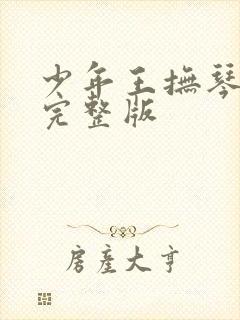 少年王撫琴
完整版
房產大亨